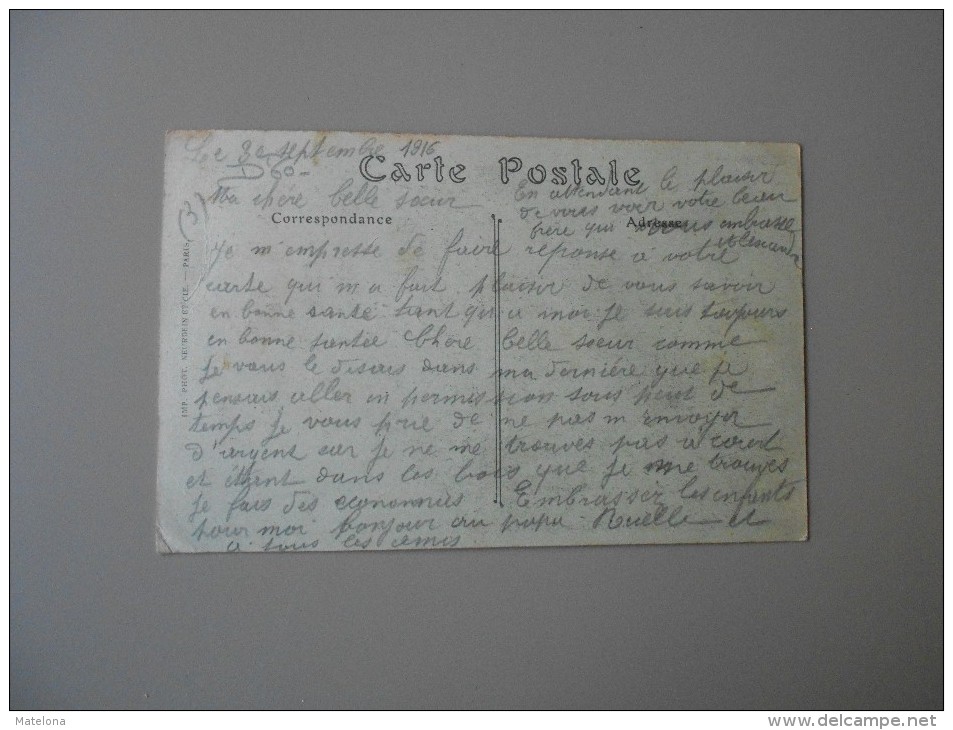 Le 3e septembre 1916
Carte Postale
D 60-
(3)
Ma chère belle sœur
Correspondance
Adresse
IMP. PHOT. NEURDEIN ET CIE. - PARIS
Je m'empresse de faire reponse a votre
carte qui m'a fait plaisir de vous savoir
en bonne santé tant qu'a moi je suis toujours
en bonne santée Chère belle sœur comme
je vous le disais dans ma dernière que je
pensais aller en permission sous peut de
temps je vous prie de ne pas m'envoyer
d'argent car je ne me trouves pas a court
et étant dans les bois que je me trouves
je fais des economies Embrassez les enfants
pour moi bonjour au papa Ruelle et
a tous les amis
En attendant le plaisir
de vous voir votre beau
frère qui vous embrasse
Matelona
www.delcampe.net